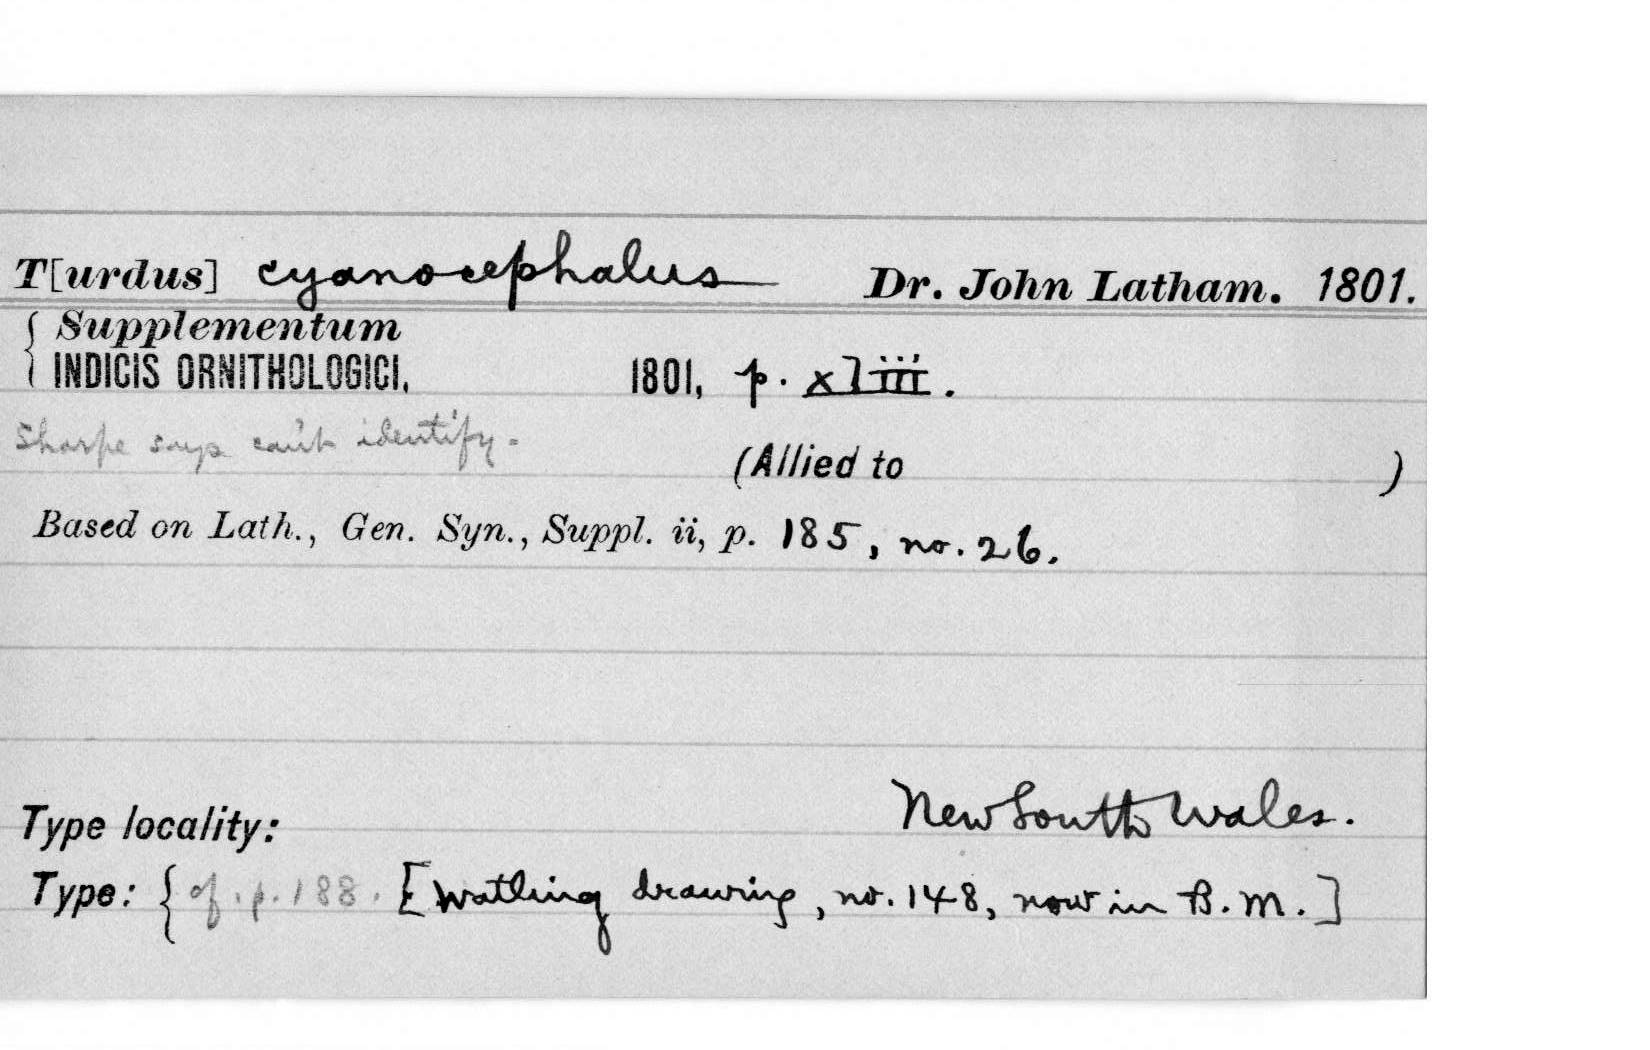 T[urdus] cyanocephalus Dr. John Latham. 1801.
{ Supplementum
INDICIS ORNITHOLOGICI, 1801, p. xliii.
Sharpe says can't identify.
(Allied to )
Based on Lath., Gen. Syn., Suppl. ii, p. 185, no. 26.
Type locality: New South Wales.
Type: { of. p. 188. [Watling drawing, no. 148, now in B. M.]